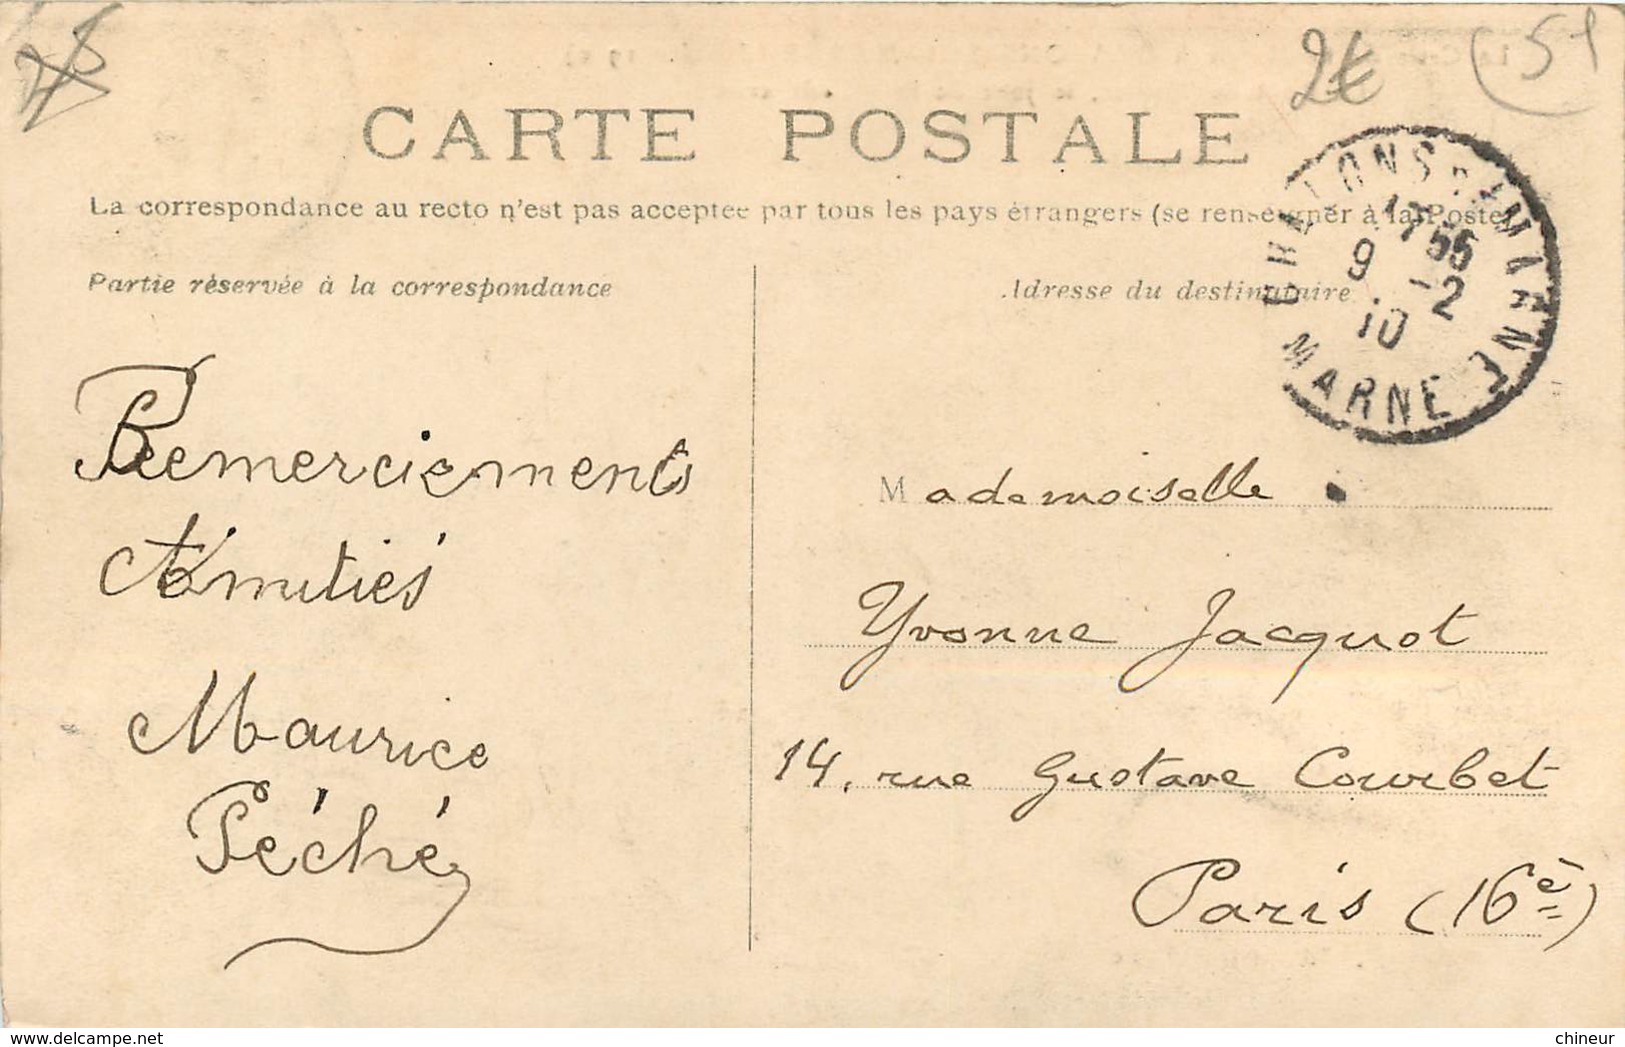 2€
51
CARTE POSTALE
La correspondance au recto n'est pas acceptée par tous les pays étrangers (se renseigner à la Poste
Partie réservée à la correspondance
Adresse du destinataire
CHALONS S/ MARNE
17 55
9 - 2
10
MARNE
Remerciements
Amitiés
Maurice
Péché
Mademoiselle
Yvonne Jacquot
14, rue Gustave Courbet
Paris (16è)
delcampe.net
chineur